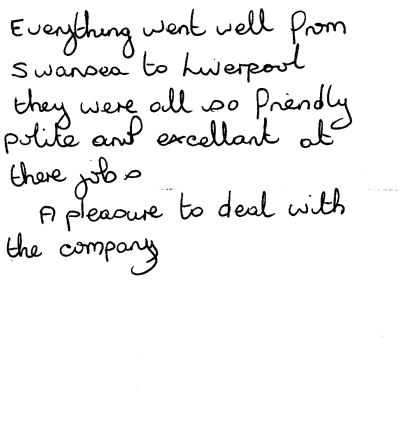 Everything went well from
Swansea to Liverpool
they were all so friendly
polite and excellant at
there jobs
A pleasure to deal with
the company